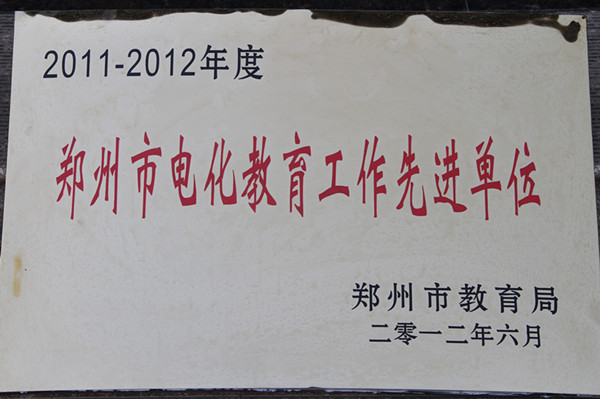 2011-2012年度
郑州市电化教育工作先进单位
郑州市教育局
二零一二年六月